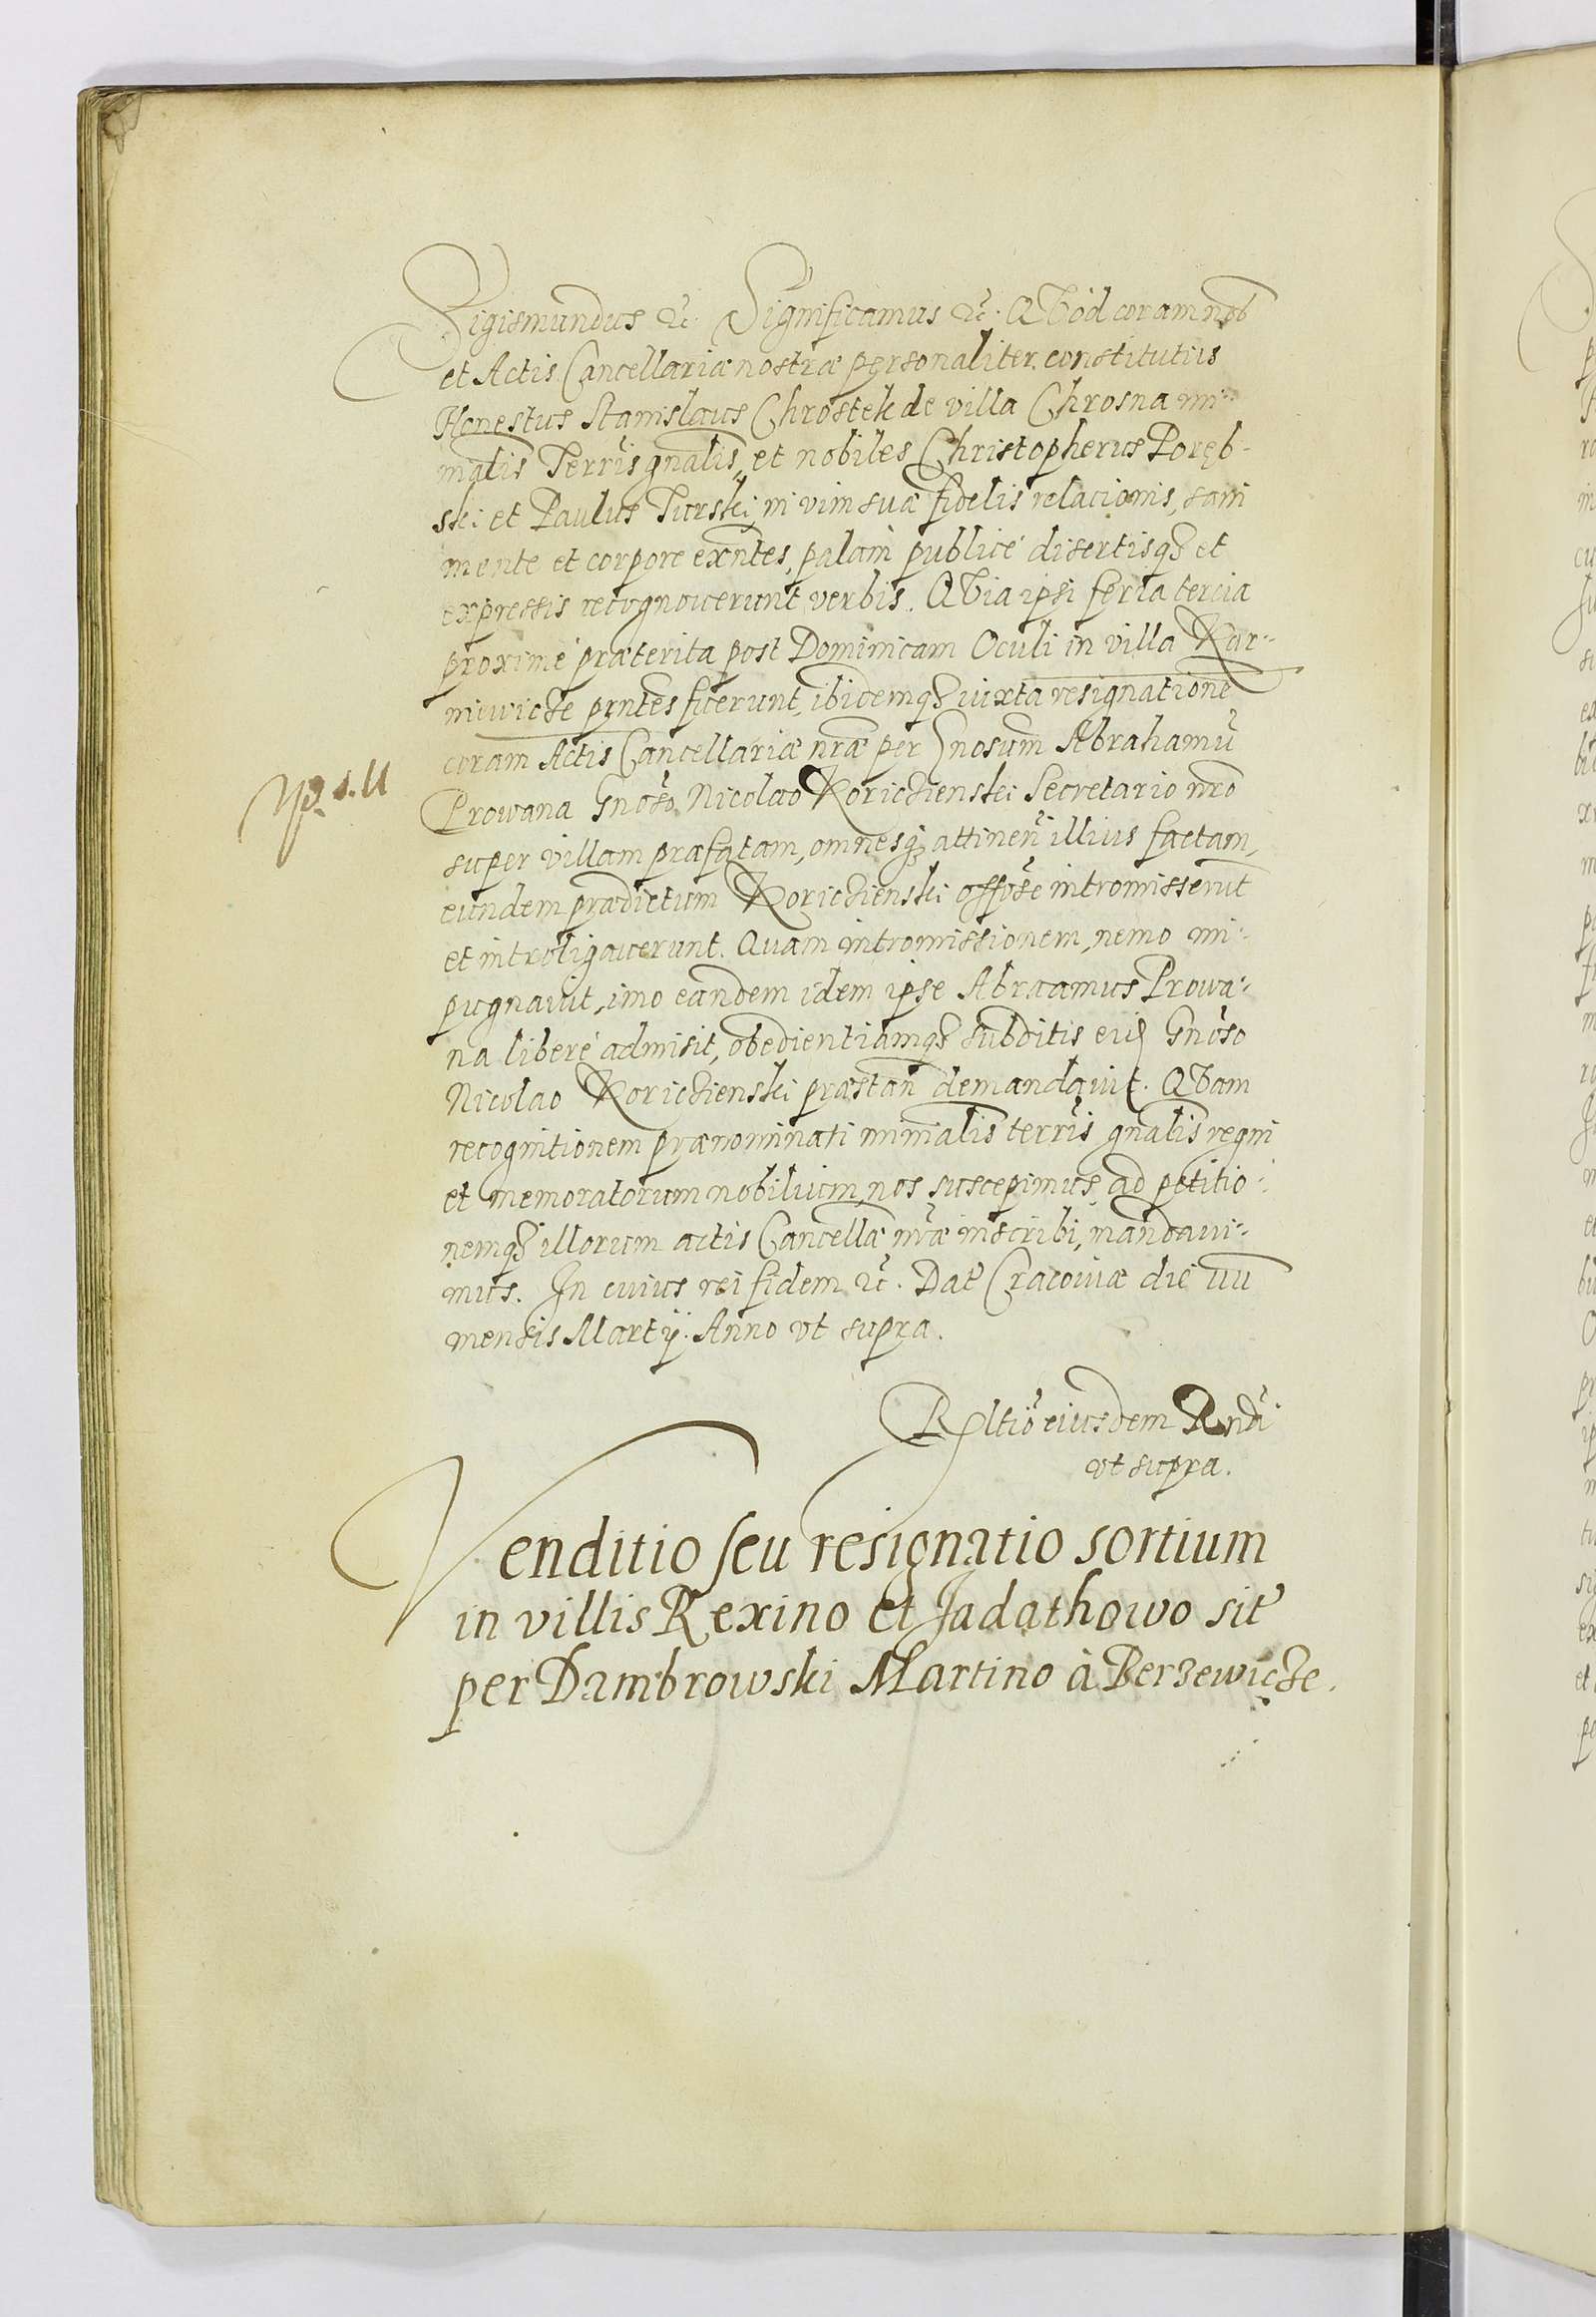 Sigismundus &c. Significamus &c. QVod coram nob
et Actis Cancellariæ nostræ personaliter constitutus
Honestus Stanislaus Chrostek de villa Chrosna mi-
nialis Terrĩs gnalis, et nobiles Christopherus Poręb-
ski et Paulus Turski, in vim suæ fidelis relacionis, sani
mente et corpore exntes, palam publicè disertisq3 et
expressis recognouerunt verbis. QVia ipsi feria tercia
proximè præterita post Dominicam Oculi in villa Kar-
niuwicze pntes fuerunt, ibidemq3 iuxta resignatione
coram Actis Cancellariæ nræ per Gnosum Abrahamũ
Prowana Gnoso Nicolao Koriczienski Secretario nro
super villam præfatam, omnesq3 attinen illius factam,
eundem prædictum Koriczienski offose intromisserut
et introligauerunt. Quam intromissionem, nemo im-
pugnauit, imo eandem idem ipse Abraamus Prowa-
na liberè admisit, obedientiamq3 subditis eius Gnoso
Nicolao Koriczienski præstan demandauit. QVam
recognitionem prænominati minialis terrĩs gnalis regni
et memoratorum nobilium, nos suscepimus, ad petitio-
nemq3 illorum actis Cancellæ nræ inscribi, mandaui-
mus. In cuius rei fidem &c. Dat Cracouiæ die uu
mensis Martij. Anno vt supra.
Rltio eiusdem Rndi
vt supra.
Venditio seu resignatio sortium
in villis Rexino et Jadathowo sit
per Dambrowski Martino à Berzewicze.